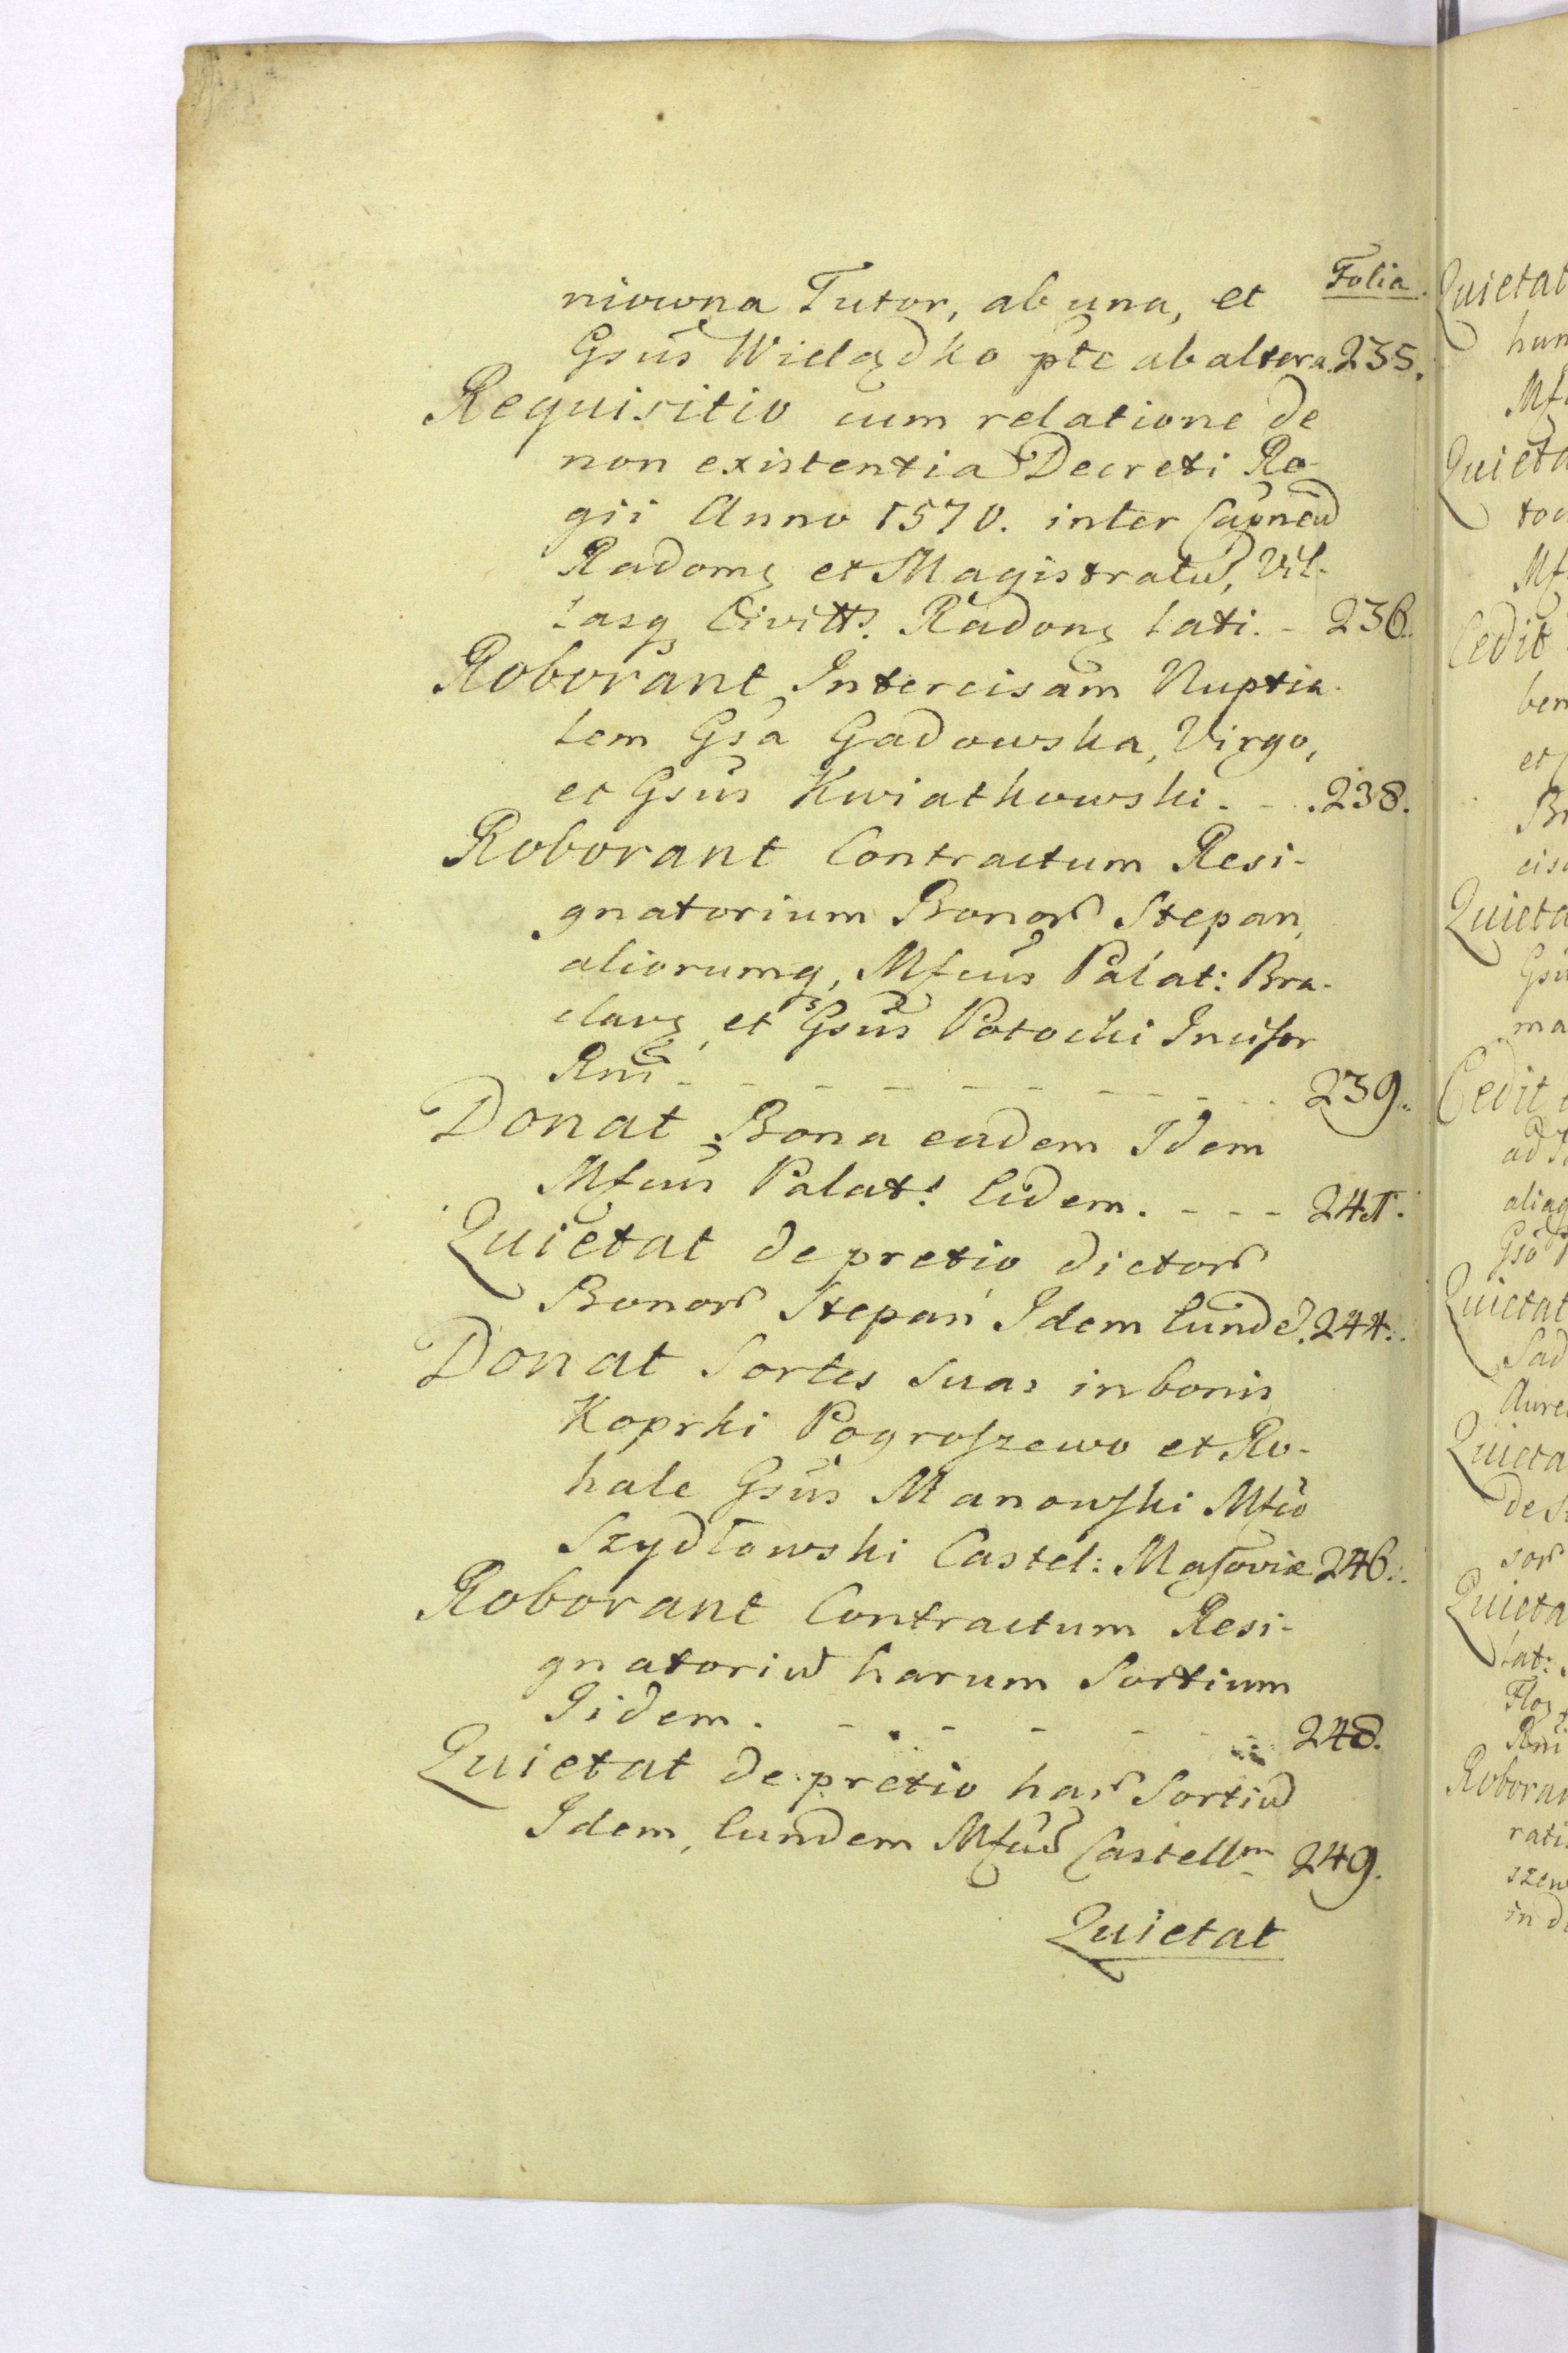 Folia.
niowna Tutor, ab una, et
Gsus Wielądko pte ab altera. 235.
Requisitio cum relatione de
non existentia Decreti Re-
gii Anno 1570. inter Capneū
Radomę et Magistratū, Vil-
lasq Civitts. Radonę lati. - 236.
Roborant Intercisam Nuptia-
lem Gsa Gadowska, Virgo,
et Gsus Kwiatkowski. - . 238.
Roborant Contractum Resi-
gnatorium Bonor Stepan,
aliorumq, Mfcus Palat: Bra-
clavę, et Gsus Potocki Incisor
Rni - - - - - - - - 239.
Donat Bona eadem Idem
Mfcus Palat: Eidem. - - - 241.
Quietat de pretio dictor
Bonor Stepań Idem Eunde. 244.
Donat Sortes suas in bonis
Koprki Pogroszewo et Ro-
kale Gsus Manowski Mfco
Szydłowski Castel: Masoviæ 246.
Roborant Contractum Resi-
gnatoriū harum Sortium
Iidem. - - - - - - 248.
Quietat de pretio har Sortiū
Idem, Eundem Mfcū Castellm 249.
Quietat
Quietat
hun
Mf
Quieta
toc
Mf
Cedit
ben
et
Br
cis
Quieta
Gsu
ma
Cedit
ad
aliaq
Gso
Quietat
Sad
Aure
Quieta
de S
sor
Quieta
lat:
Flo
Rni
Roboran
rati
szew
in d